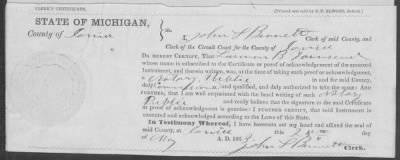 CLERK'S CERTIFICATE.
STATE OF MICHIGAN,
County of Ionia ss.
Clerk of said County, and
Clerk of the Circuit Court for the County of Ionia
DO HEREBY CERTIFY, That
whose name is subscribed to the Certificate or proof of acknowledgment of the annexed
Instrument, and therein written, was, at the time of taking such proof or acknowledgment,
a Notary Public in and for said county,
duly and qualified, and duly authorized to take the same: And
FURTHER, that I am well acquainted with the hand writing of such Notary
Public and verily believe that the signature to the said Certificate
or proof of acknowledgment is genuine: I FURTHER CERTIFY, that said Instrument is
executed and acknowledged according to the Laws of this State.
In Testimony Whereof, I have hereunto set my hand and affixed the seal of
said County, at Ionia this day
of May A. D. 186
Clerk.